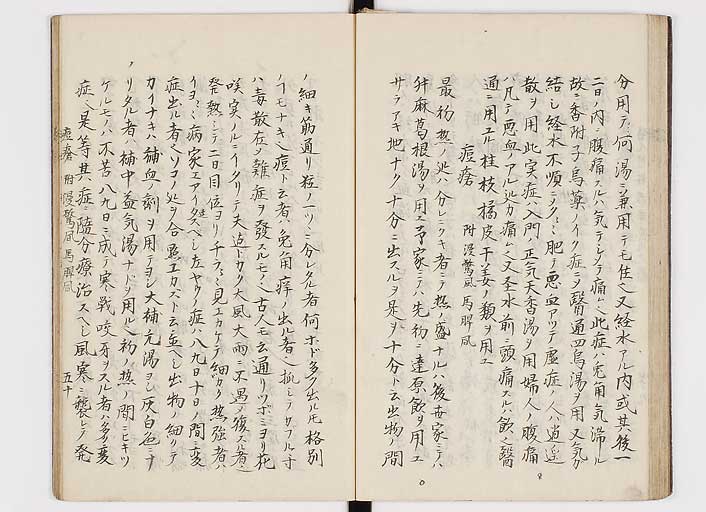 分用テ何湯ニ兼用テモ佳シ又経水アル内或其後一
二日ノ内ニ腹痛スルハ気テシケテ痛ム此症ハ兎角気滞ル
故ニ香附子烏薬ノイク症ニヲ醫通四烏湯ヲ用又気分
結シ経水不順ニテクハシ肥テ悪血アツテ虚症ノ人ハ逍遥
散ヲ用此実症ハ入門ノ正気天香湯ヲ用婦人ノ腹痛
ハ凡テ悪血ノアル処カ痛ム又圣水前ニ頭痛スルハ飲ム醫
通ニ用エル桂枝橘皮干姜ノ類ヲ用エ
痘瘡 附 漫驚風 馬脾風
最初熱ノ処ハ分レニクキ者ニテ熱ノ盛ナルハ後世家ニテハ
升麻葛根湯ヲ用エ予家ニテハ先初ニ達原飲ヲ用エ
サラアキ地ナク十分ニ出スルヲ是ヲ十分ト云出物ノ間
ノ細キ筋通リ粒ノ一ツニ分レタル者何ホド多ク出ルモ格別
ノイモナキ也痘ト云者ハ兎角痒ノ出ル者也抓シテカフル寸
ハ毒散在ノ難症ヲ發スルモノ也古人モ云通リツボミヨリ花
咲実ノルニイタリテ天迄ドカク大風大雨ニ不遇ノ復スル者也
発熱シテ二日目位ヨリチラチラ見エカケテ細カク熱強者ハ
イヨイヨ病家エアイタツベシ左ヤウノ症ハ八九日十日ノ間ニ変
症出ル者也ソコノ処ヲ合点エカスト云立ベシ出物ノ細クテ
カイナキハ補血ノ剤ヲ用テヨシ大補元湯ヨシ灰白色ニナ
ノリタル者ハ補中益気湯ナドヲ用ル也初ノ熱ノ間ニヒキツ
ケルモノハ不苦八九日ニ成テ寒戦咬牙ヲスル者ハ多ク変
症也是等其症ニ隨分療治スベシ風寒ニ襲レテ発
痘瘡 附漫驚風 馬脾風 五十